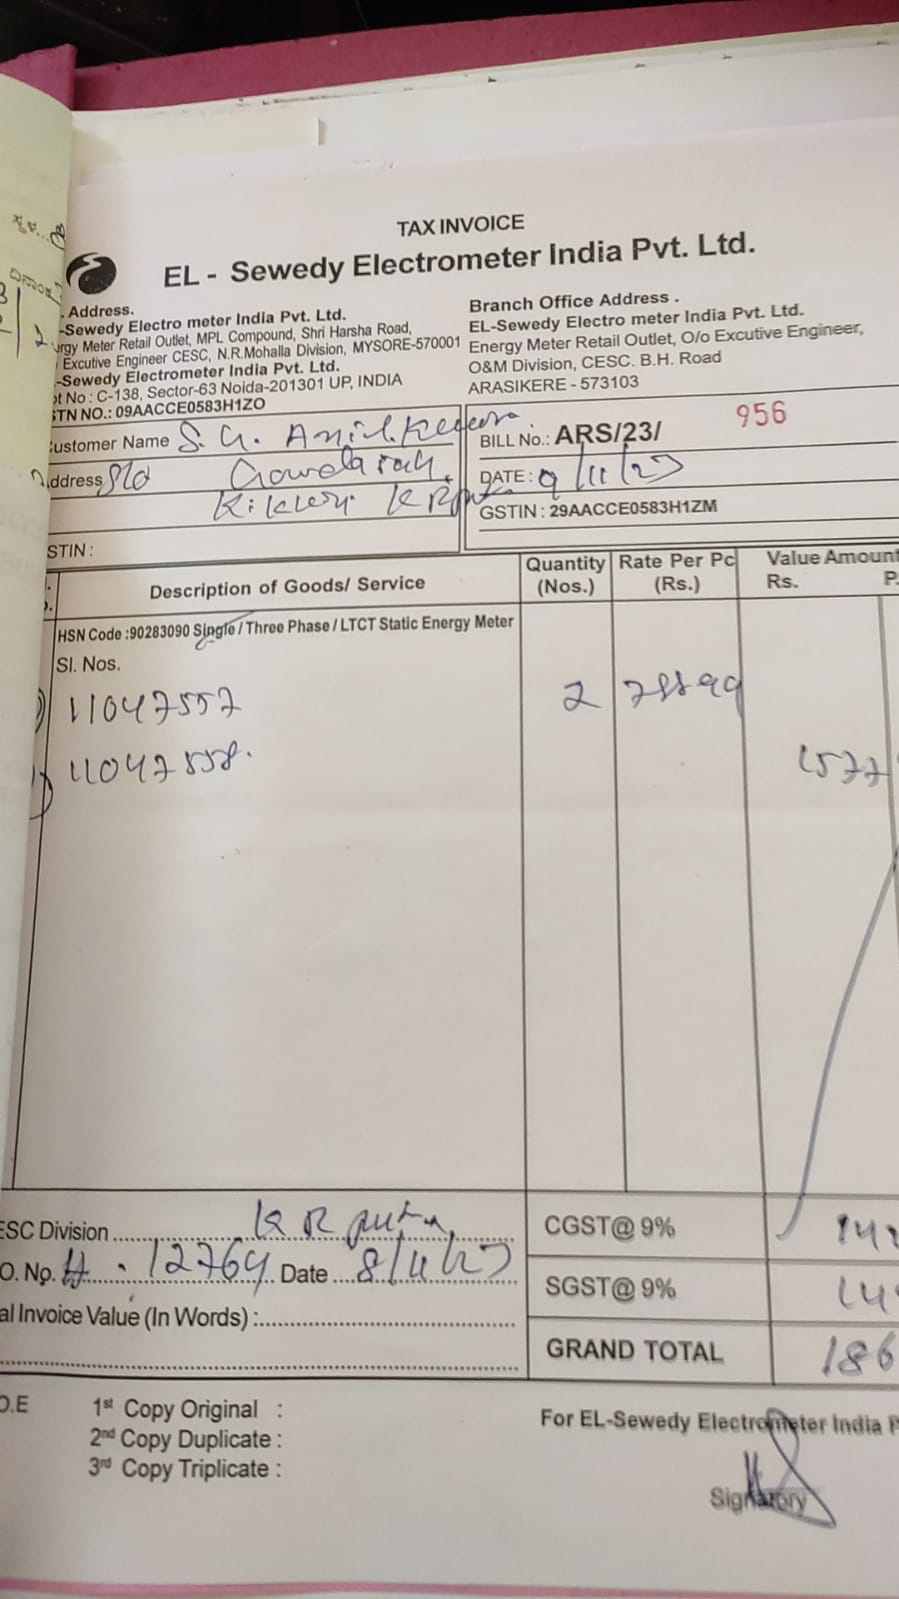 TAX INVOICE
EL - Sewedy Electrometer India Pvt. Ltd.
. Address.
-Sewedy Electro meter India Pvt. Ltd.
rgy Meter Retail Outlet, MPL Compound, Shri Harsha Road,
Excutive Engineer CESC, N.R.Mohalla Division, MYSORE-570001
-Sewedy Electrometer India Pvt. Ltd.
ot No : C-138, Sector-63 Noida-201301 UP, INDIA
STN NO.: 09AACCE0583H1ZO
Branch Office Address .
EL-Sewedy Electro meter India Pvt. Ltd.
Energy Meter Retail Outlet, O/o Excutive Engineer,
O&M Division, CESC. B.H. Road
ARASIKERE - 573103
ustomer Name S.G. Anil
ddress S/o
Kikkeri
STIN :
BILL No.: ARS/23/ 956
DATE : 9/11/23
GSTIN : 29AACCE0583H1ZM
Description of Goods/ Service
Quantity (Nos.)
Rate Per Pc (Rs.)
Value Amount
Rs. P.
HSN Code :90283090 Single / Three Phase / LTCT Static Energy Meter
Sl. Nos.
11047557 2
11047558.
1577
ESC Division K R
O. No. 12764 Date
al Invoice Value (In Words) :
CGST@ 9%
SGST@ 9%
GRAND TOTAL 186
O.E
1st Copy Original :
2nd Copy Duplicate :
3rd Copy Triplicate :
For EL-Sewedy Electrometer India P
Signatory